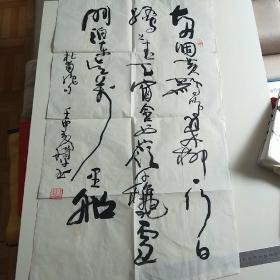 两個黄鹂鸣翠柳一行白
鹭上青天窗含西嶺千秋雪
门泊東吴万里船
杜甫诗